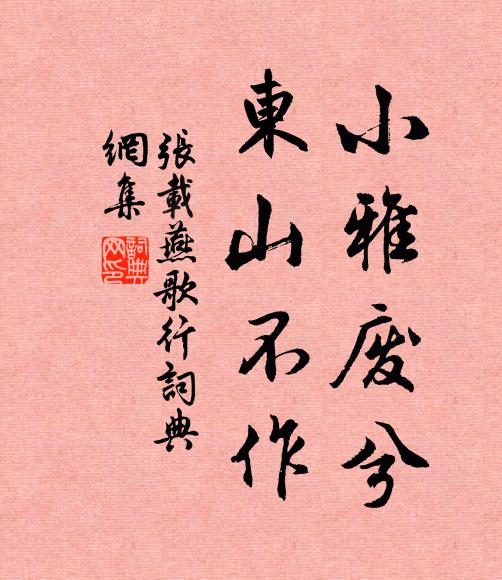 小雅废兮
東山不作
張載燕歌行詞典
網集
詞典
网印